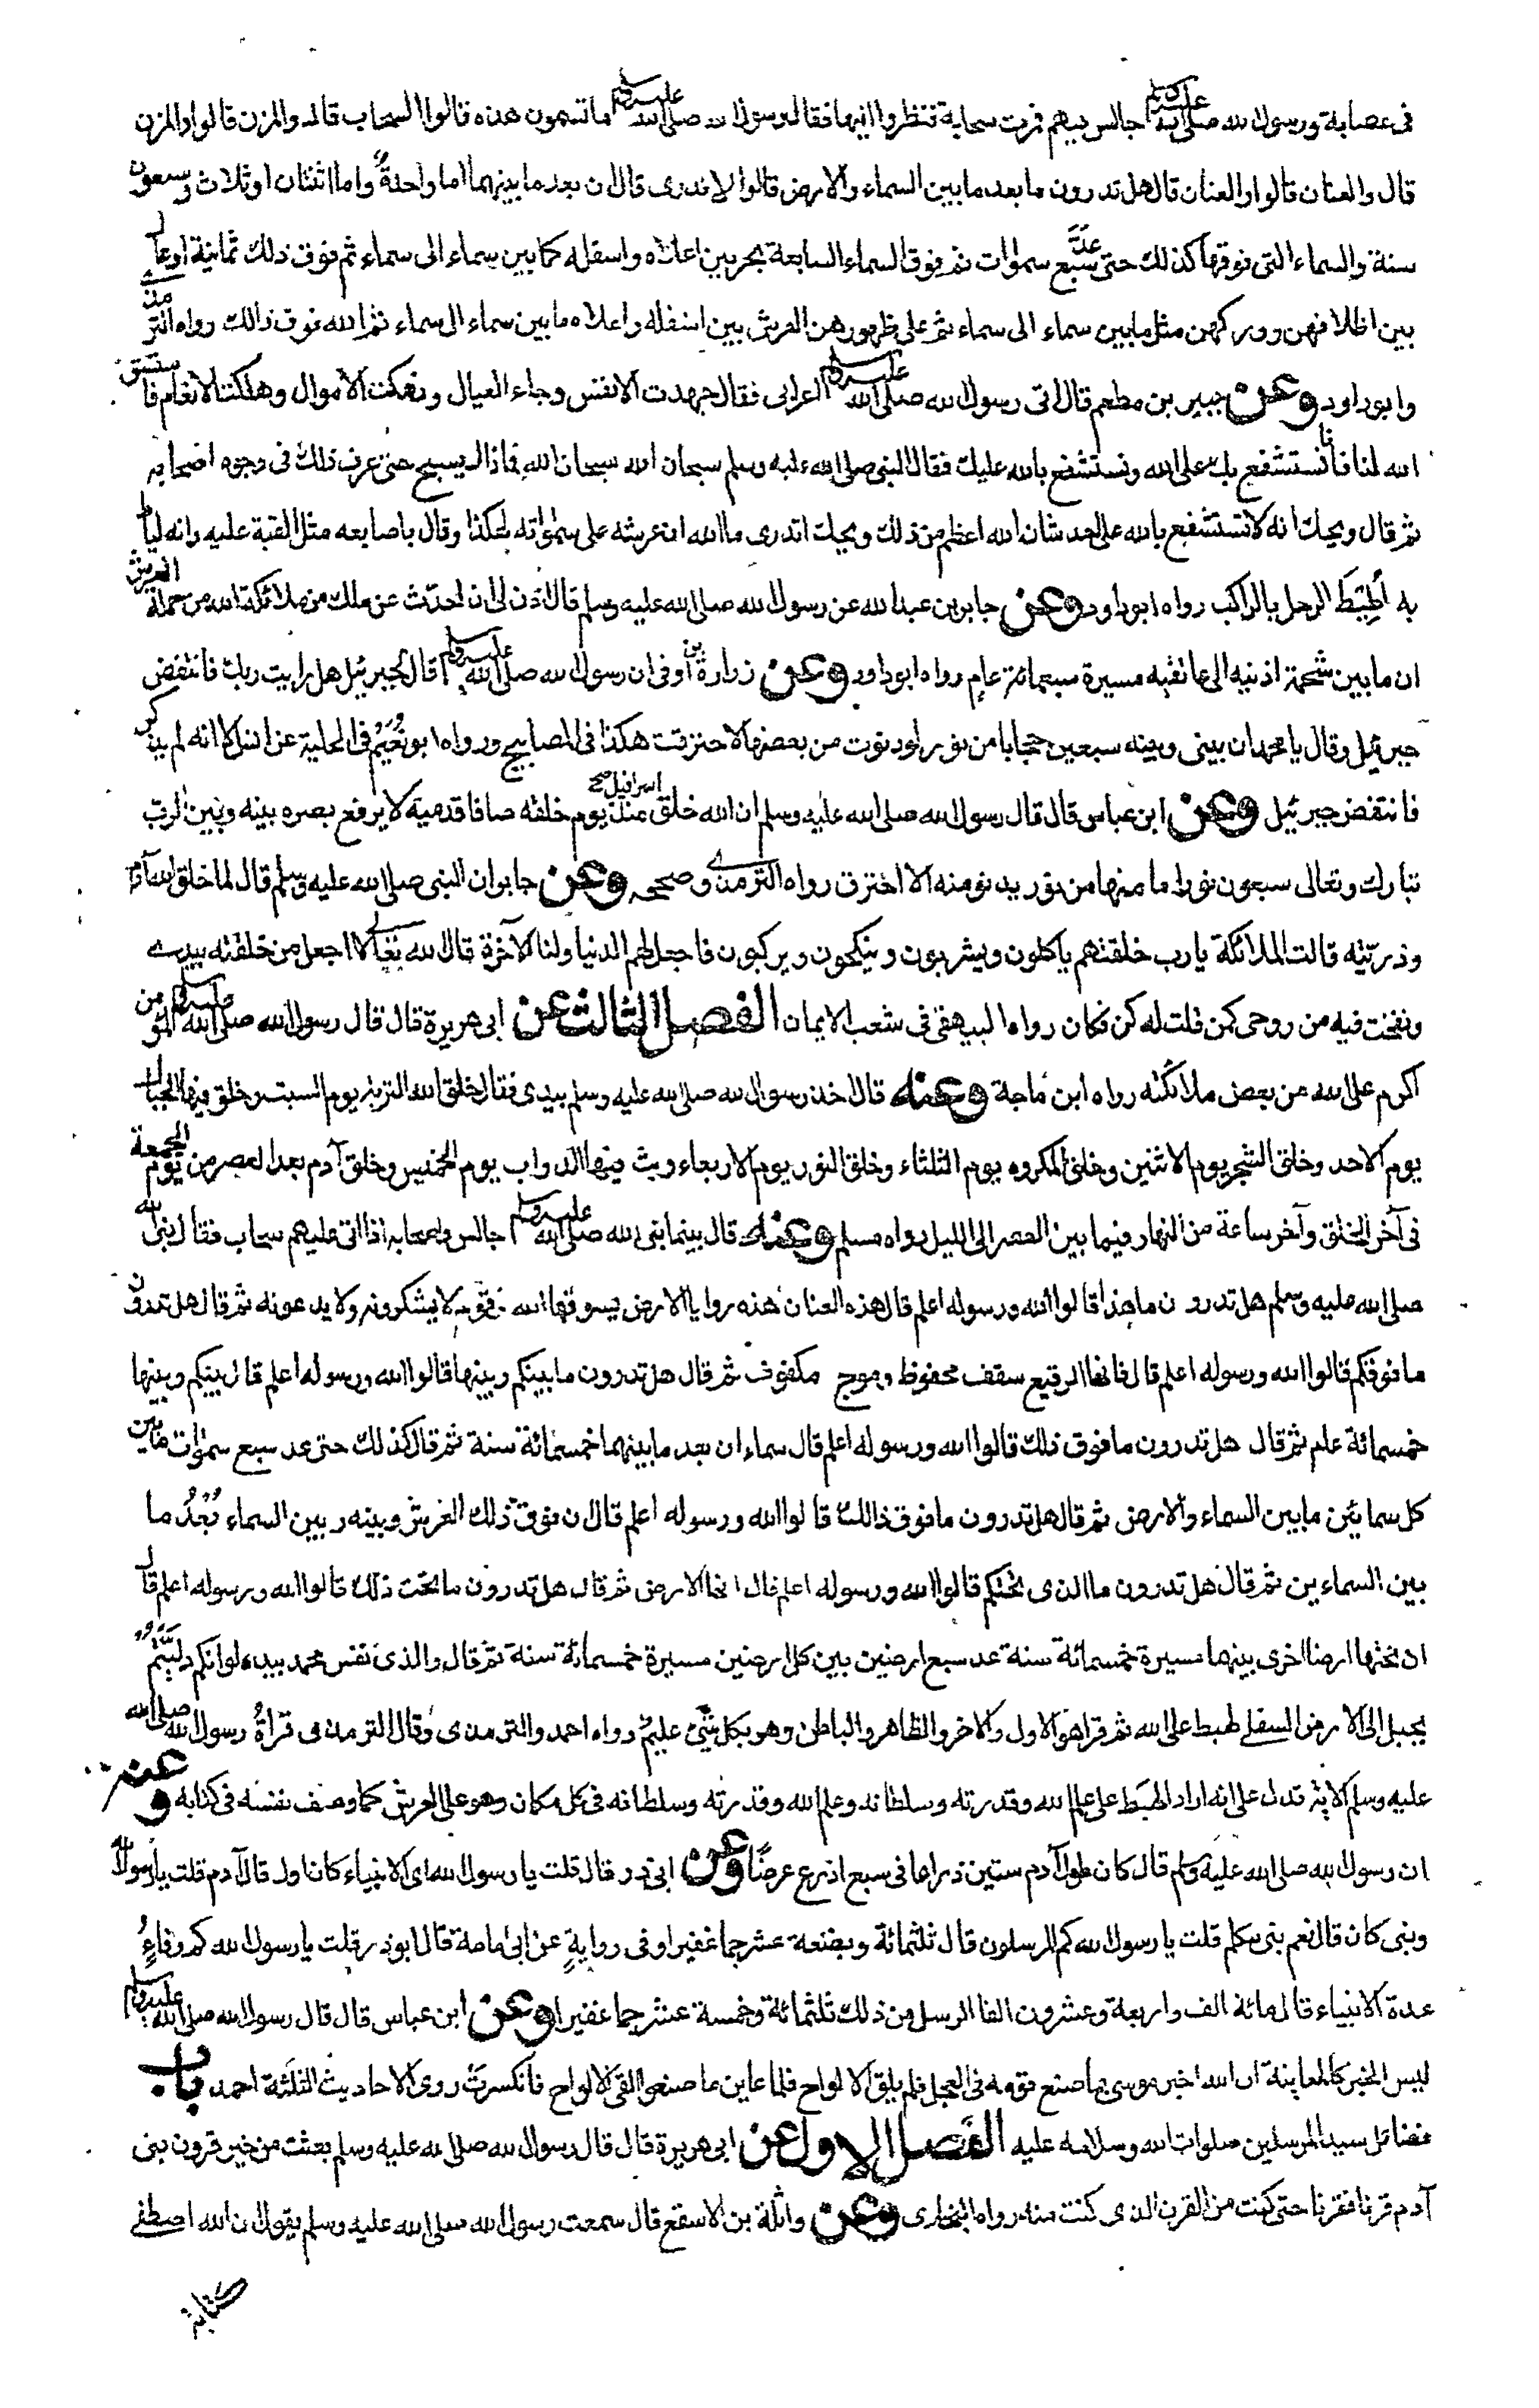 فى عصابة ورسول الله صلى الله عليه وسلم جالس فيهم فمرت سحابة فنظروا اليها فقال رسول الله صلى الله عليه وسلم ما تسمون هذه قالوا السحاب قال والمزن قالوا والمزن
قال والعنان قالوا والعنان قال هل تدرون ما بعد ما بين السماء والارض قالوا لا ندرى قال ان بعد ما بينهما اما واحدة واما اثنتان او ثلاث وسبعون
سنة والسماء التى فوقها كذلك حتى عد سبع سموات ثم فوق السماء السابعة بحر بين اعلاه واسفله كما بين سماء الى سماء ثم فوق ذلك ثمانية اوعال
بين اظلافهن ووركهن مثل ما بين سماء الى سماء ثم على ظهورهن العرش بين اسفله واعلاه ما بين سماء الى سماء ثم الله فوق ذالك رواه الترمذى
وابوداود وعن جبير بن مطعم قال اتى رسول الله صلى الله عليه وسلم اعرابى فقال جهدت الانفس وجاع العيال ونهكت الاموال وهلكت الانعام فاستسق
الله لنا فانا نستشفع بك على الله ونستشفع بالله عليك فقال النبى صلى الله عليه وسلم سبحان الله سبحان الله فما زال يسبح حتى عرف ذلك فى وجوه اصحابه
ثم قال ويحك انه لا تستشفع بالله على احد شان الله اعظم من ذلك ويحك اتدرى ما الله ان عرشه على سمواته لهكذا وقال باصابعه مثل القبة عليه وانه ليأط
به أطيط الرحل بالراكب رواه ابوداود وعن جابر بن عبد الله عن رسول الله صلى الله عليه وسلم قال اذن لى ان احدث عن ملك من ملائكة الله من حملة العرش
ان ما بين شحمة اذنيه الى عاتقيه مسيرة سبعمائة عام رواه ابوداود وعن زرارة بن اوفى ان رسول الله صلى الله عليه وسلم قال لجبرئيل هل رايت ربك فانتفض
جبرئيل وقال يا محمد ان بينى وبينه سبعين حجابا من نور لو دنوت من بعضها لاحترقت هكذا فى المصابيح ورواه ابو نعيم فى الحلية عن انس الا انه لم يذكر
فانتفض جبرئيل وعن ابن عباس قال قال رسول الله صلى الله عليه وسلم ان الله خلق اسرافيل صح منذ يوم خلقه صافا قدميه لا يرفع بصره بينه وبين الرب
تبارك وتعالى سبعون نورا ما منها من نور يدنو منه الا احترق رواه الترمذى وصححه وعن جابر ان النبى صلى الله عليه وسلم قال لما خلق الله آدم
وذريته قالت الملائكة يارب خلقتهم ياكلون ويشربون وينكحون ويركبون فاجعل لهم الدنيا ولنا الآخرة قال الله تعالى لا اجعل من خلقته بيدى
ونفخت فيه من روحى كمن قلت له كن فكان رواه البيهقى فى شعب الايمان الفصل الثالث عن ابى هريرة قال قال رسول الله صلى الله عليه وسلم المؤمن
اكرم على الله من بعض ملائكته رواه ابن ماجة وعنه قال اخذ رسول الله صلى الله عليه وسلم بيدى فقال خلق الله التربة يوم السبت وخلق فيها الجبال
يوم الاحد وخلق الشجر يوم الاثنين وخلق المكروه يوم الثلثاء وخلق النور يوم الاربعاء وبث فيها الدواب يوم الخميس وخلق آدم بعد العصر من يوم الجمعة
فى آخر الخلق وآخر ساعة من النهار فيما بين العصر الى الليل رواه مسلم وعنه قال بينما نبى الله صلى الله عليه وسلم جالس واصحابه اذ اتى عليهم سحاب فقال نبى الله
صلى الله عليه وسلم هل تدرون ما هذا قالوا الله ورسوله اعلم قال هذه العنان هذه روايا الارض يسوقها الله قوم لا يشكرونه ولا يدعونه ثم قال هل تدرون
ما فوقكم قالوا الله ورسوله اعلم قال فانها الرقيع سقف محفوظ وموج مكفوف ثم قال هل تدرون ما بينكم وبينها قالوا الله ورسوله اعلم قال بينكم وبينها
خمسمائة عام ثم قال هل تدرون ما فوق ذلك قالوا الله ورسوله اعلم قال سماءان بعد ما بينهما خمسمائة سنة ثم قال كذلك حتى عد سبع سموات ما بين
كل سمائين ما بين السماء والارض ثم قال هل تدرون ما فوق ذالك قالوا الله ورسوله اعلم قال ان فوق ذلك العرش وبينه وبين السماء بُعْدُ ما
بين السماءين ثم قال هل تدرون ما الذى تحتكم قالوا الله ورسوله اعلم قال انها الارض ثم قال هل تدرون ما تحت ذلك قالوا الله ورسوله اعلم قال
ان تحتها ارضا اخرى بينهما مسيرة خمسمائة سنة عد سبع ارضين بين كل ارضين مسيرة خمسمائة سنة ثم قال والذى نفس محمد بيده لو انكم دليتم
بحبل الى الارض السفلى لهبط على الله ثم قرا هو الاول والاخر والظاهر والباطن وهو بكل شئ عليم رواه احمد والترمذى وقال الترمذى قرأة رسول الله صلى الله
عليه وسلم الاية تدل على انه اراد لهبط على علم الله وقدرته وسلطانه وعلم الله وقدرته وسلطانه فى كل مكان وهو على العرش كما وصف نفسه فى كتابه وعنه
ان رسول الله صلى الله عليه وسلم قال كان طول آدم ستين ذراعا فى سبع اذرع عرضا وعن ابى ذر قال قلت يا رسول الله اى الانبياء كان اول قال آدم قلت يا رسول الله
ونبى كان قال نعم نبى مكلم قلت يا رسول الله كم المرسلون قال ثلثمائة وبضعة عشر جما غفيرا وفى رواية عن ابى امامة قال ابوذر قلت يا رسول الله كم وفاء
عدة الانبياء قال مائة الف واربعة وعشرون الفا الرسل من ذلك ثلثمائة وخمسة عشر جما غفيرا وعن ابن عباس قال قال رسول الله صلى الله عليه وسلم
ليس الخبر كالمعاينة ان الله اخبر موسى بما صنع قومه فى العجل فلم يلق الالواح فلما عاين ما صنعوا القى الالواح فانكسرت روى الاحاديث الثلثة احمد باب
فضائل سيد المرسلين صلوات الله وسلامه عليه الفصل الاول عن ابى هريرة قال قال رسول الله صلى الله عليه وسلم بعثت من خير قرون بنى
آدم قرنا فقرنا حتى كنت من القرن الذى كنت منه رواه البخارى وعن واثلة بن الاسقع قال سمعت رسول الله صلى الله عليه وسلم يقول ان الله اصطفى
كنانة